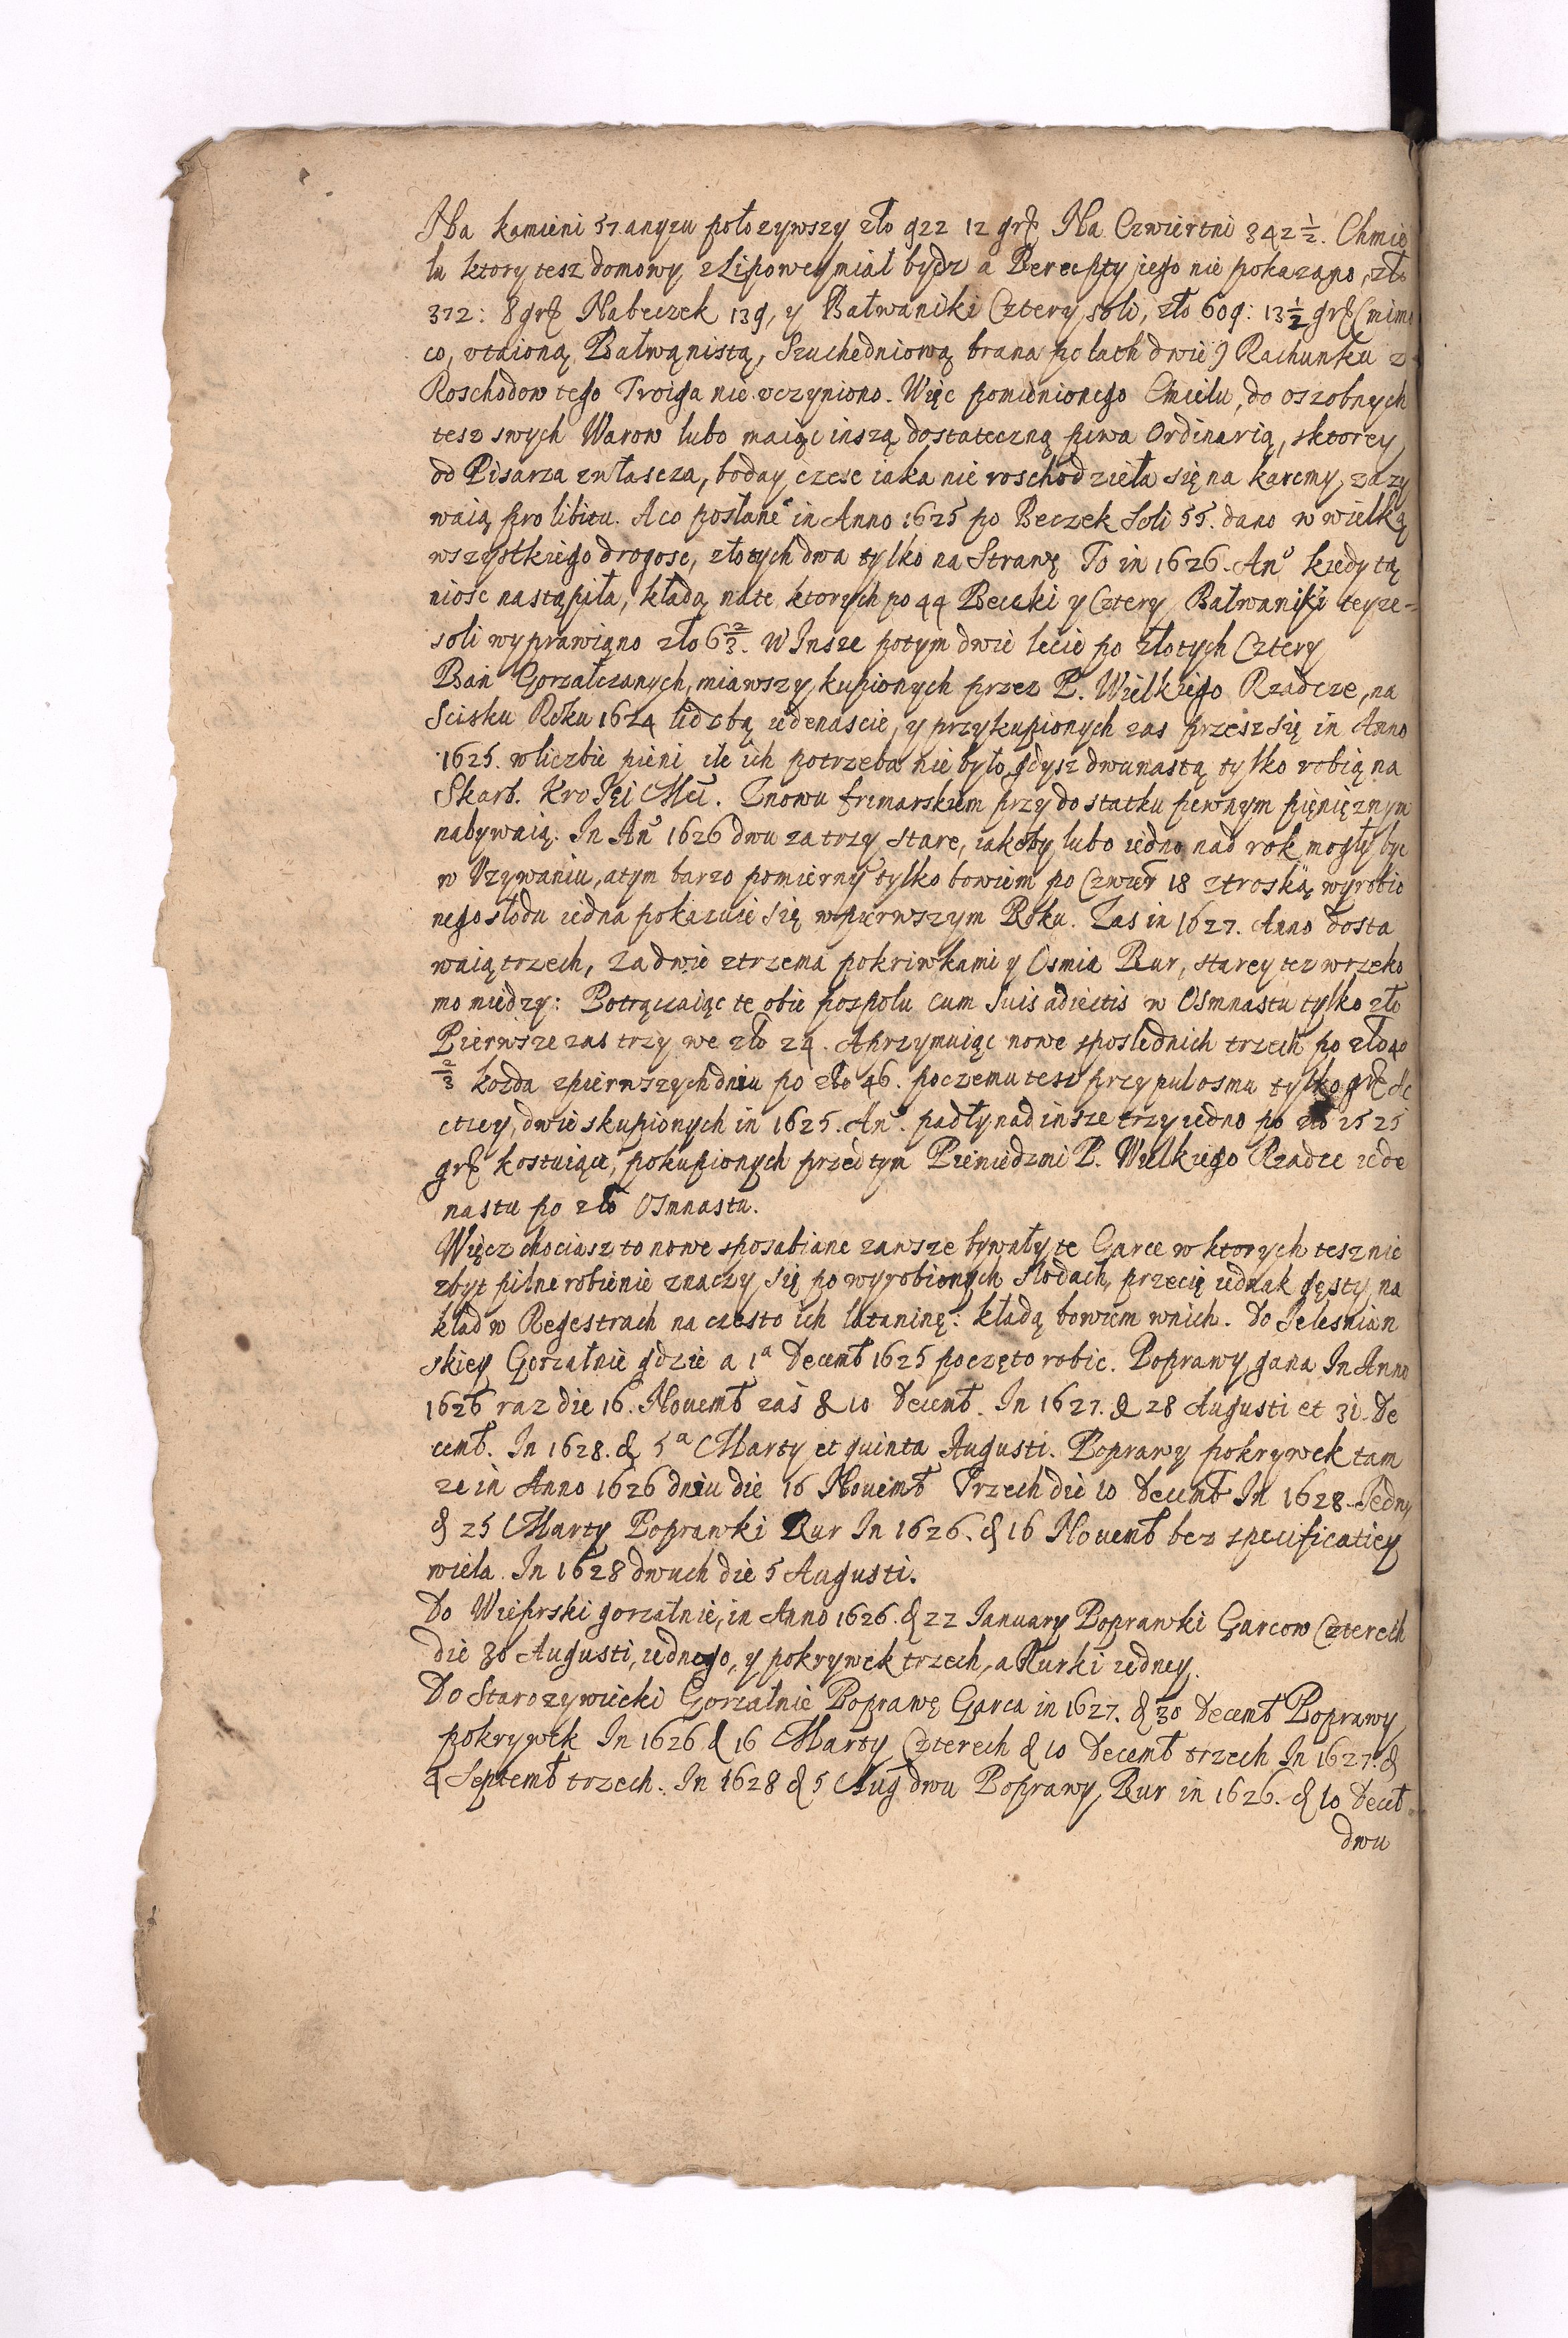 Na kamieni 57 anyzu położywszy zło 922 12 gr Na Czwiertni 342 1/2. Chmie
lu ktory tesz domowy z Lipowey miał bydz a Percepty jego nie pokazano, zło
372: 8 gr Na beczek 139, y Bałwaniki Cztery soli, zło 609: 13 1/2 gr (mimo
co, Bałwanistą, Suchedniową brana po łath dwie) Rachunku z
Roschodow tego Troiga nie vczyniono. Więc pomienionego Chmielu, do oszobnych
tesz swych Warow lubo maiąc inszą dostateczną piwa Ordinarią, sktorey
od Pisarza zwłascza, boday czesc iaka nie roschodzieła się na karcmy, zazy
waią pro libitu. A co posłane in Anno 1625 po Beczek Soli 55. dano w wielką
wszystkiego drogosc, złotych dwa tylko na Strawę To in 1626. Anº kiedy tą
niosc nastąpiła, kładą na te ktorych po 44 Beczki y Cztery Bałwaniki teyze-
soli wyprawiano zło 6 2/3. W Insze potym dwie lecie po złotych Cztery
Bań Gorzałczanych, miawszy kupionych przez P. Wielkiego Rządcze, na
Scisku Roku 1624 lidzbą iedenascie, y przykupionych zas przesz się in Anno
1625. w liczbie pieni ile ich potrzeba nie było, gdysz dwunastą tylko robią na
Skarb. Kro Jei Mci. Znowu frimarskiem przy dostatku pewnym pięnięznym
nabywaią. In Anº 1626 dwu za trzy stare, iakoby lubo iedno nad rok mogły byc
w Vzywaniu, atym barzo pomierny tylko bowiem po Czwier 18 ztroską wyrobio
nego słodu iedna pokazuie się w pierwszym Roku. Zas in 1627. Anno dosta
waią trzech, za dwie ztrzema pokriwkami y Osmia Rur, starey tez wrzeko
mo miedzy: Potrączaiąc te obie pospolu cum suis adiectis w Osmnastu tylko zło
Pierwsze zas trzy we zło 24. A przymuiąc nowe sposlednich trzech po zło 40
2/3 kozda zpierwszych dwu po zło 46. poczemu tesz przy puł osmu tylko gr
, dwie skupionych in 1625. Anº. padły nad insze trzy iedno po zło 25 25
gr kostuiące, pokupionych przed tym Pieniedzmi P. Wielkiego Rządce iede
nastu po zło Osmnastu.
Więcz chociasz to nowe sposabiane zawsze bywały te Garce w ktorych tesz nie
zbyt pilne robienie znaczy się po wyrobionych słodach, przecię iednak gęsty na
kład w Regestrach na często ich łataninę: kładą bowiem w nich. Do Selesnian
skiey Gorzałnie gdzie a 1ª Decemb 1625 poczęto robic. Poprawy gana In Anno
1626 raz die 16. Nouemb zaś & 10 Decemb. In 1627. & 28 Augusti et 31. De
cemb. In 1628. & 5ª Marty et quinta Augusti. Poprawy pokrywek tam
ze in Anno 1626 dwu die 16 Nouemb Trzech die 10 Decemb In 1628 Jedny
& 25 Marty Poprawki Rur In 1626. & 16 Nouemb bez specificatiey
wiela. In 1628 dwuch die 5 Augusti.
Do Wieprski gorzałnie, in Anno 1626. & 22 January Poprawki Garcow Czterech
die 30 Augusti, iednego, y pokrywek trzech, a Rurki iedney.
Do Starozywiecki Gorzałnie Poprawę Garca in 1627. & 30 Decemb Poprawy
pokrywek In 1626 & 16 Marty Czterech & 10 Decemb trzech In 1627. &
4 Septemb trzech. In 1628 & 5 Aug dwu Poprawy Rur in 1626. & 10 Decēb
dwu